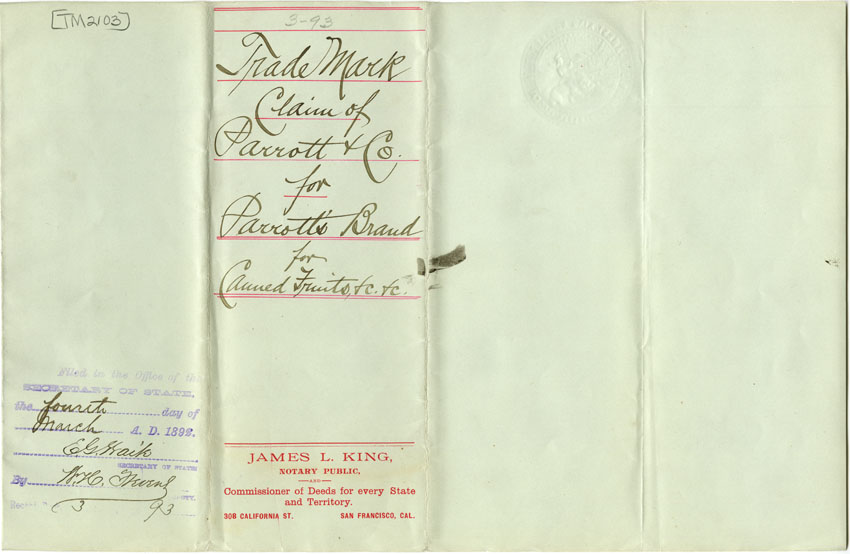 [TM2103]
3-93
Trade Mark
Claim of
Parrott & Co.
for
Parrott's Brand
for
Canned Fruits, &c. &c.
Filed in the Office of the
SECRETARY OF STATE,
the fourth day of
March A. D. 1892.
E.G. Waite
SECRETARY OF STATE
By W. H.
Record
3 93
JAMES L. KING,
NOTARY PUBLIC,
—AND—
Commissioner of Deeds for every State
and Territory.
308 CALIFORNIA ST. SAN FRANCISCO, CAL.